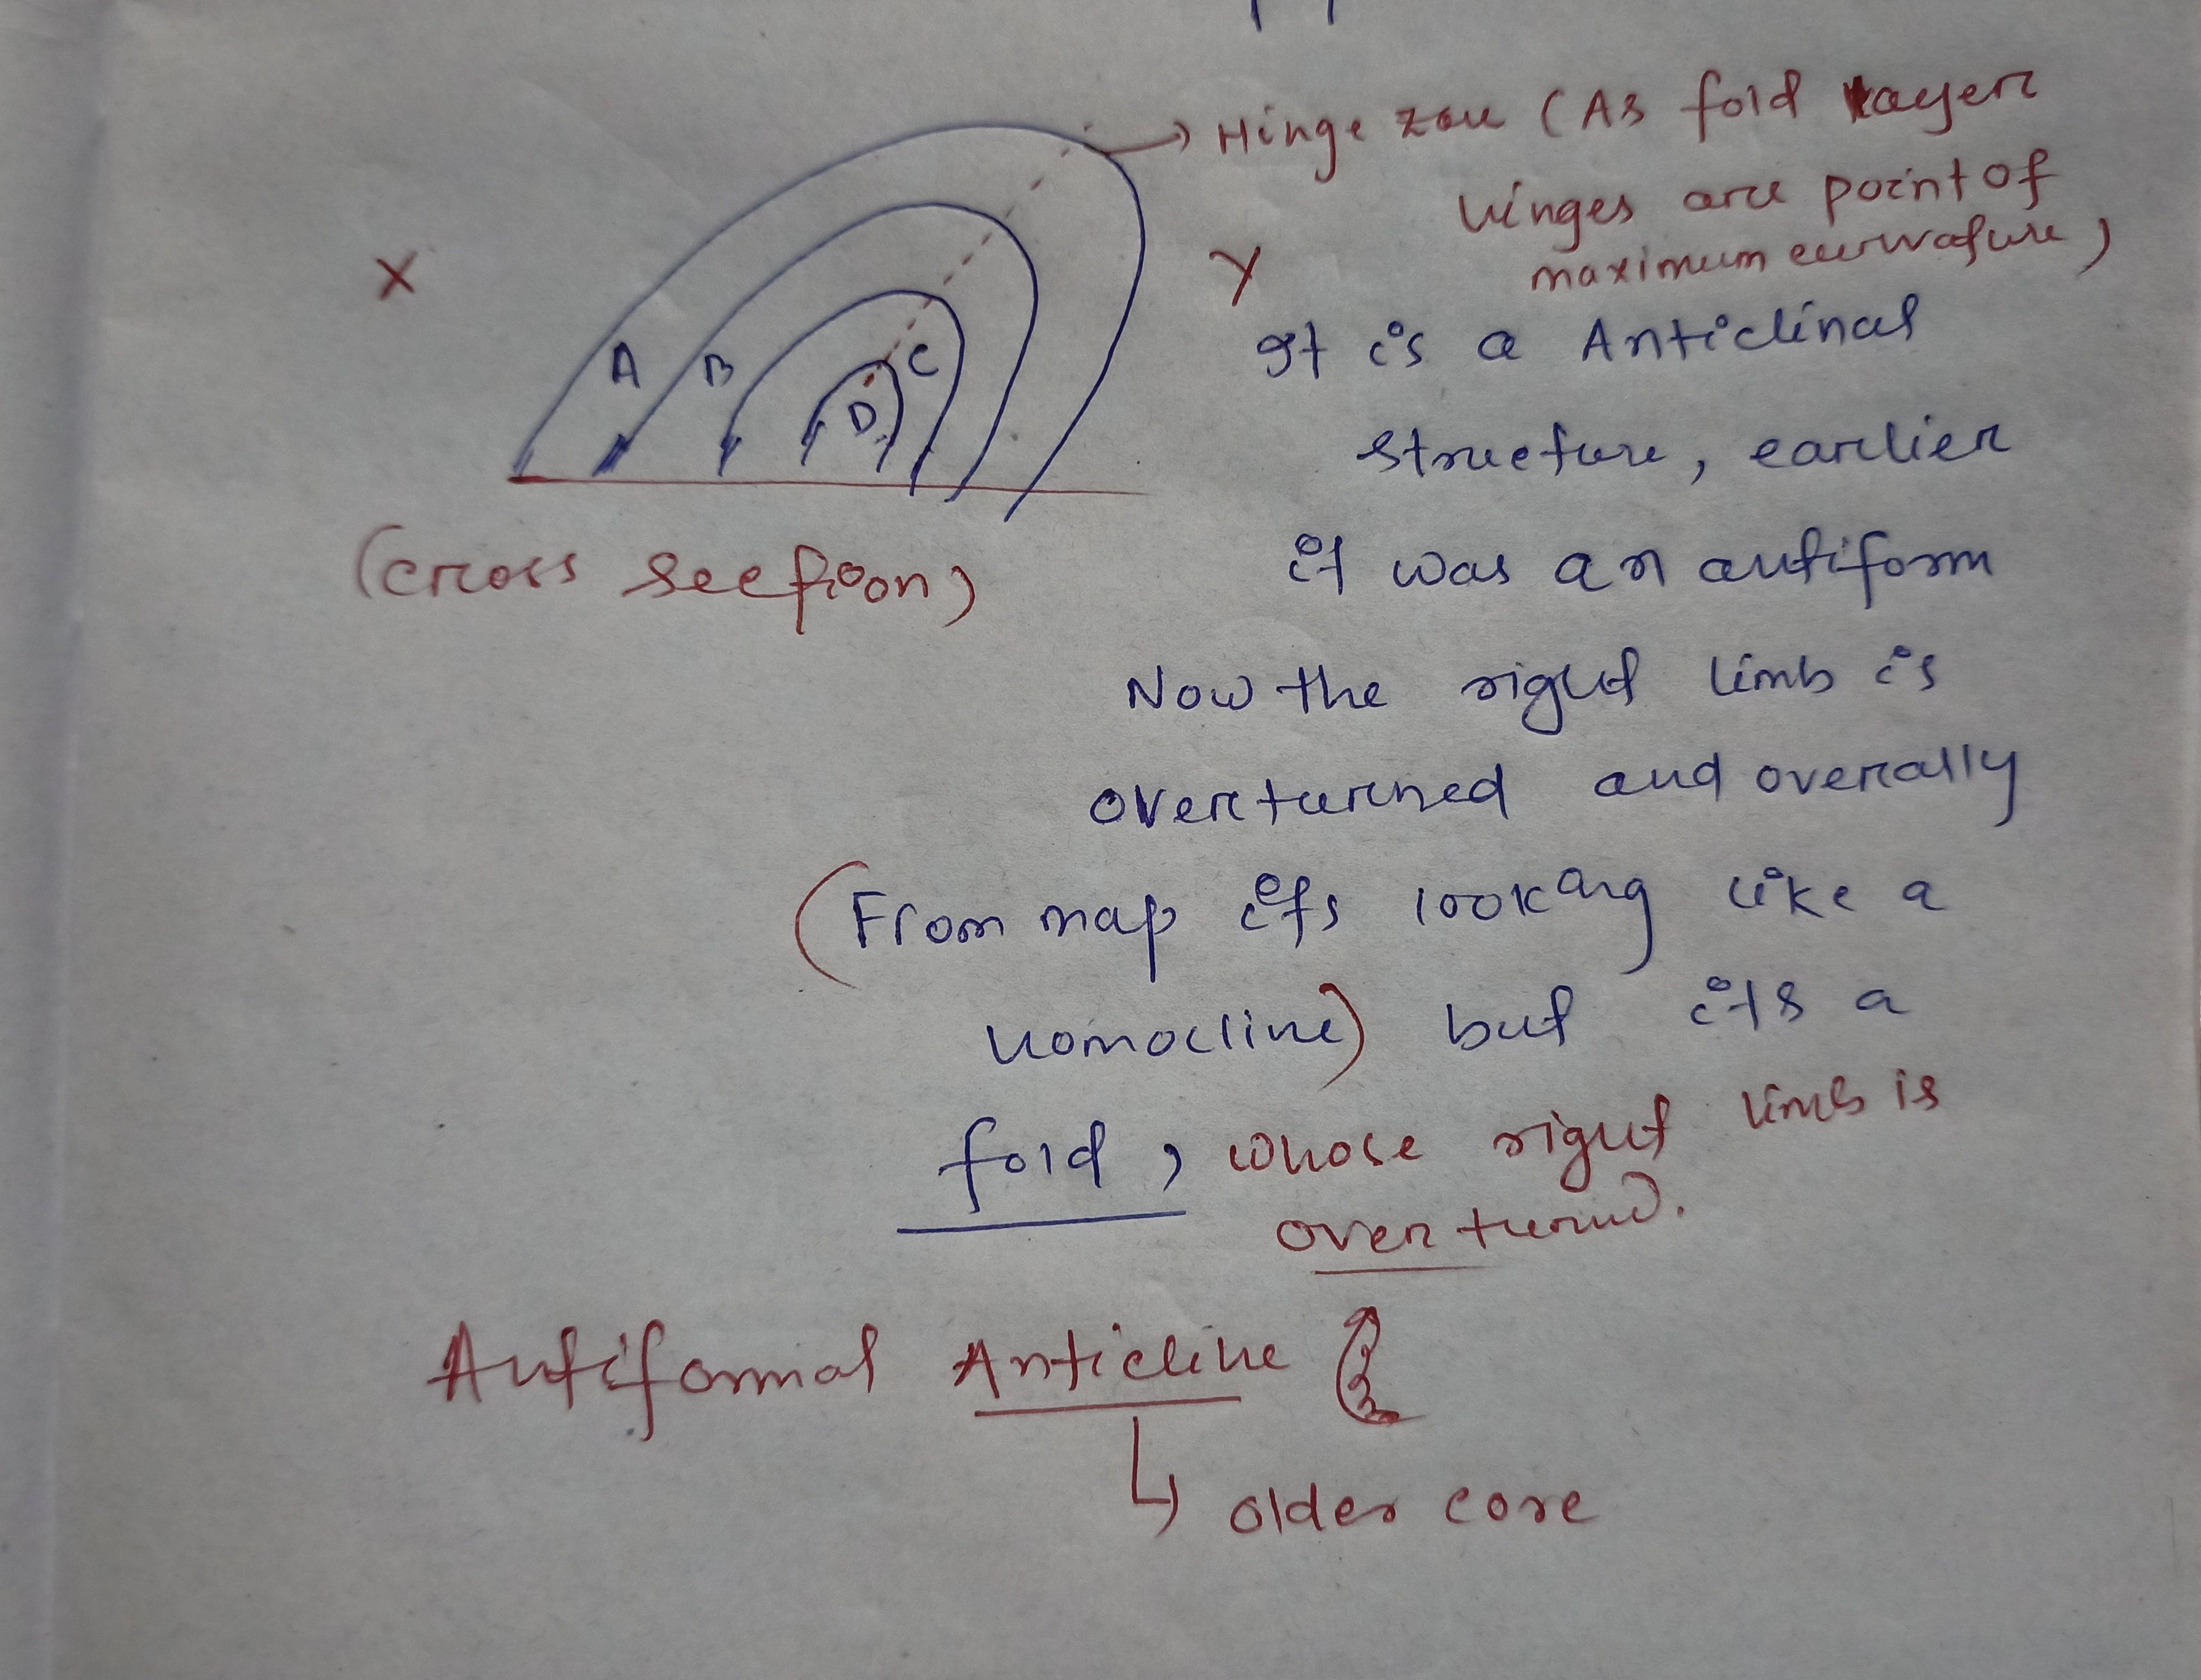 Hinge zone (As fold layer
hinges are point of
maximum curvature)
X
Y
A
B
C
D
(cross section)
It is a Anticlinal
structure, earlier
it was an antiform
Now the right limb is
overturned and overally
(From map its looking like a
homocline) but its a
fold, whose right limb is
overturned.
Antiformal Anticline
older core